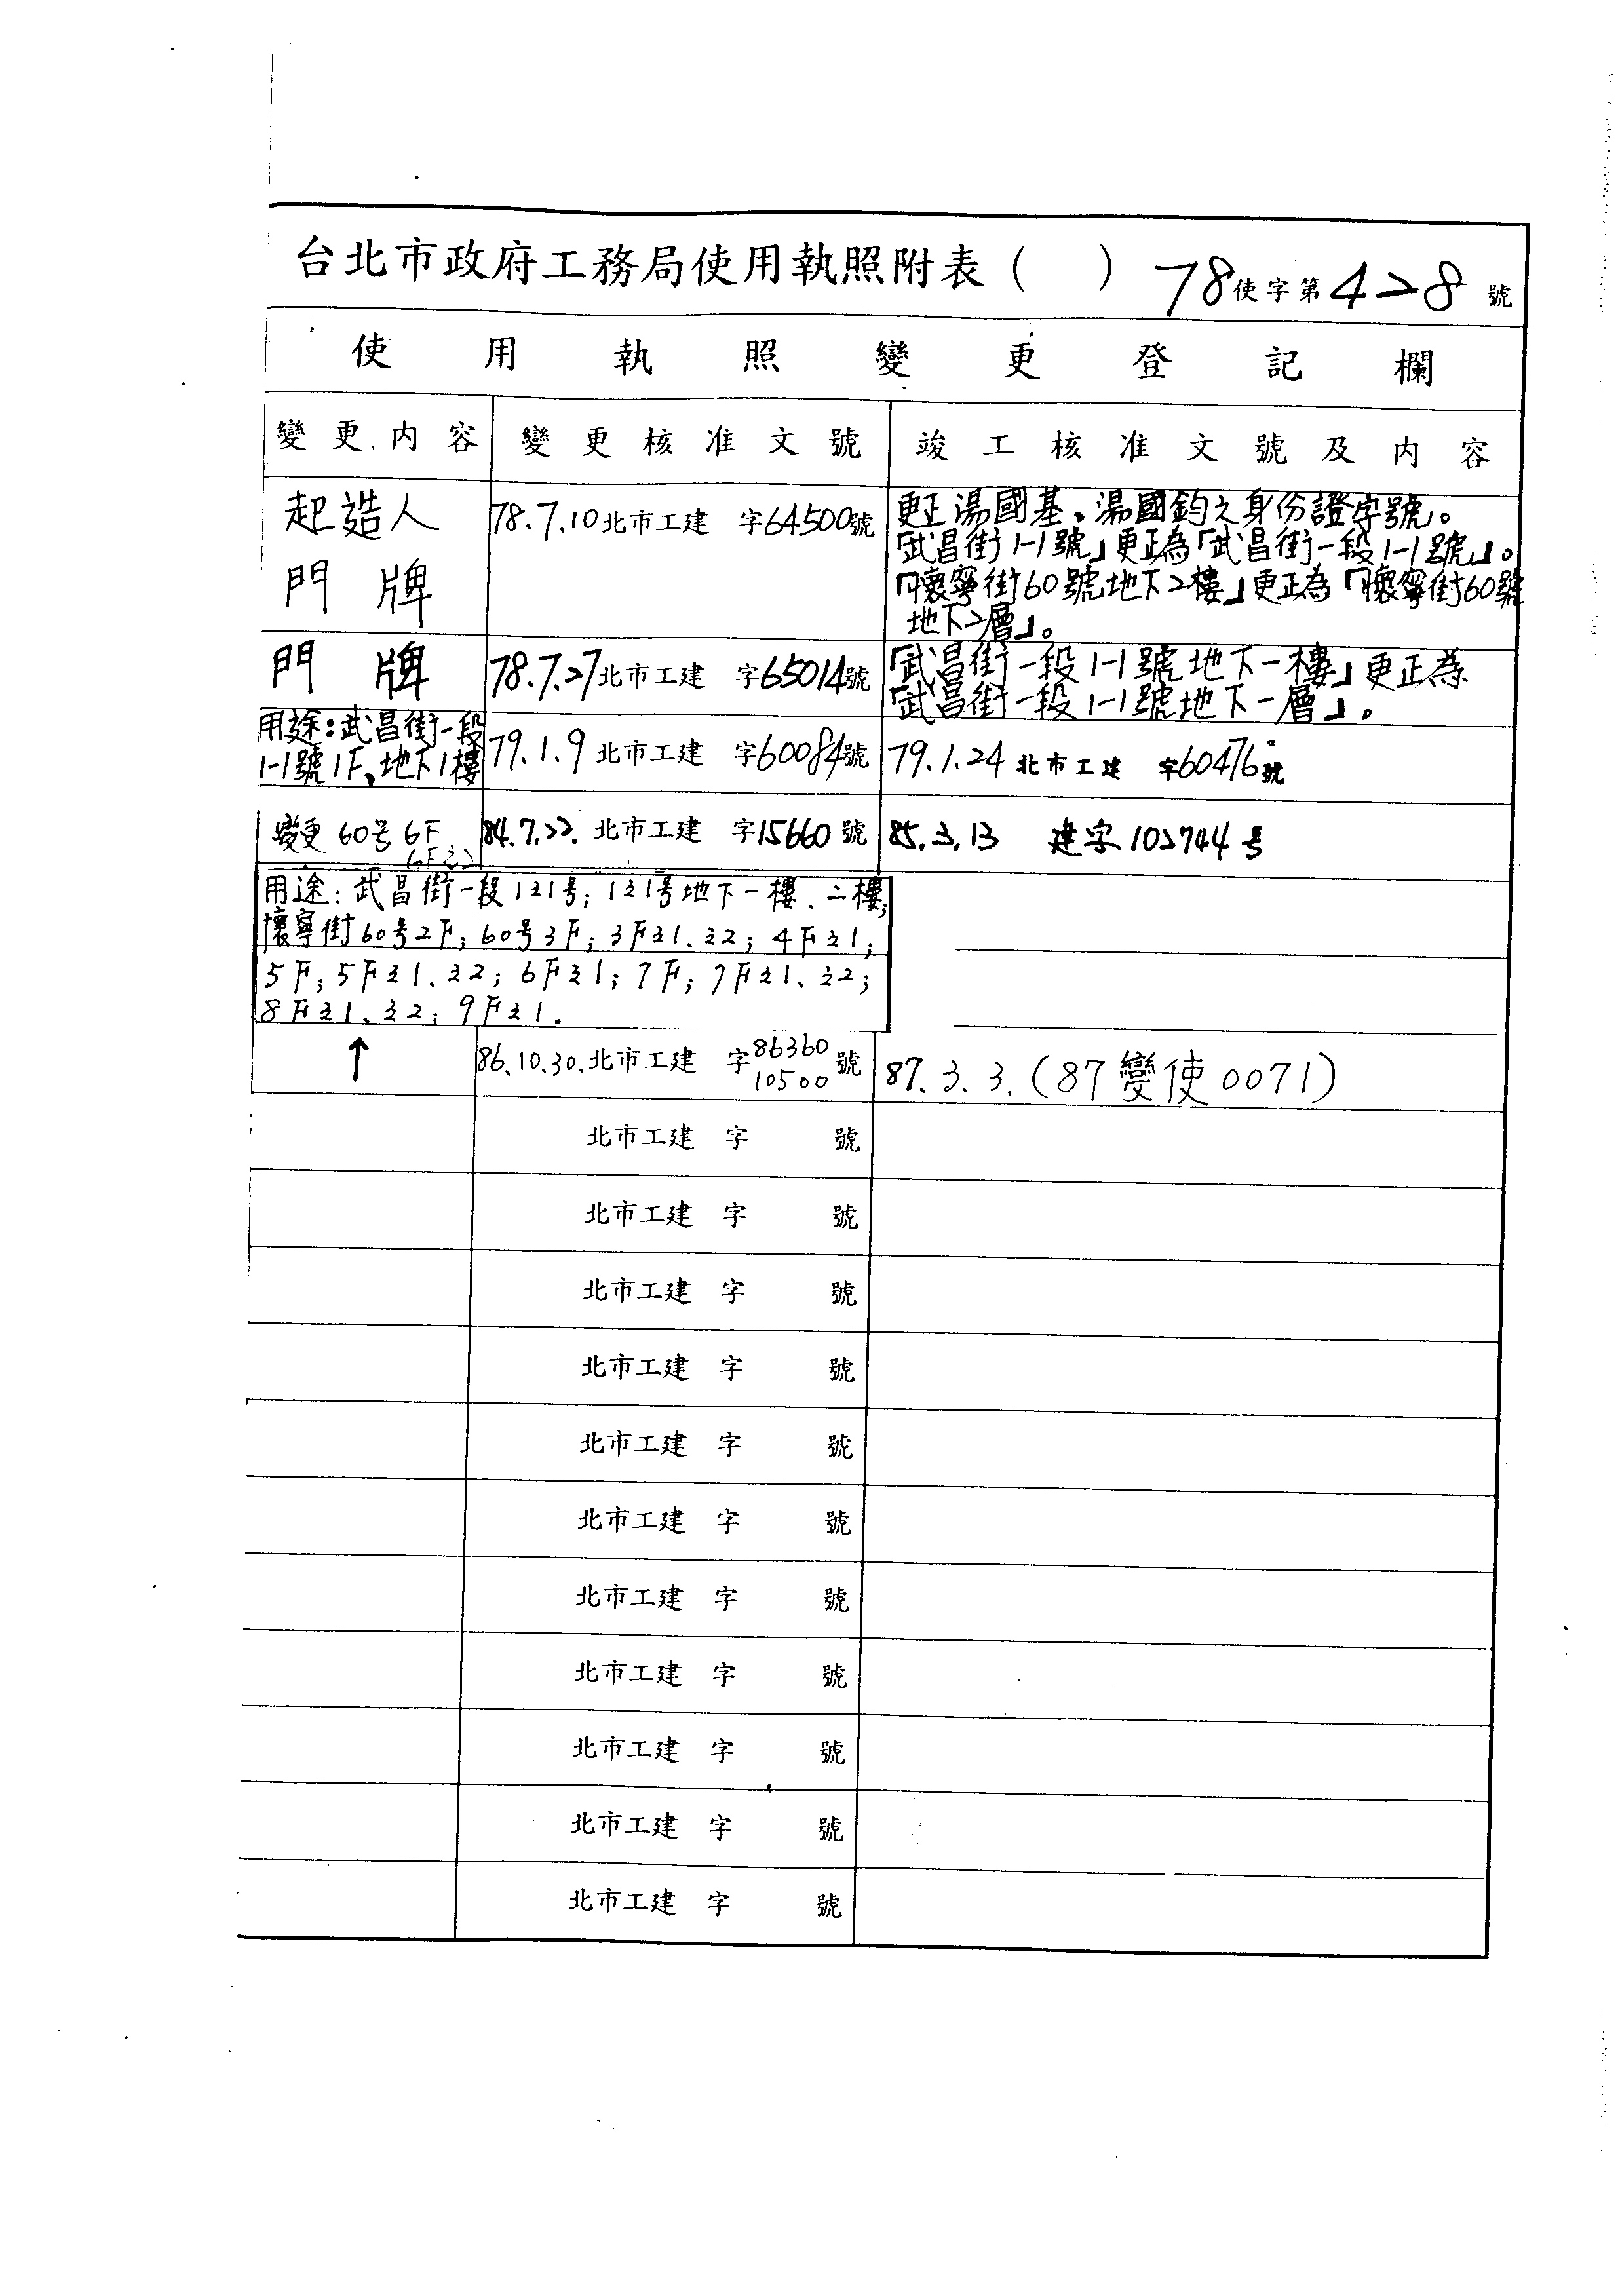 台北市政府工務局使用執照附表（　） 78使字第428號
使用執照變更登記欄
變更內容 變更核准文號 竣工核准文號及內容
起造人 78.7.10北市工建 字64500號 更正湯國基、湯國鈞之身份證字號。
「武昌街1-1號」更正為「武昌街一段1-1號」。
門牌 「懷寧街60號地下2樓」更正為「懷寧街60號
地下2層」。
門牌 78.7.27北市工建 字65014號 「武昌街一段1-1號地下一樓」更正為
「武昌街一段1-1號地下一層」。
用途:武昌街一段
1-1號1F、地下1樓 79.1.9 北市工建 字60084號 79.1.24 北市工建 字60476號
變更60号6F 84.7.22. 北市工建 字15660號 85.3.13 建字102744号
6F之2
用途:武昌街一段1之1号;1之1号地下一樓、二樓;
懷寧街60号2F;60号3F;3F之1、之2;4F之1;
5F;5F之1、之2;6F之1;7F;7F之1、之2;
8F之1、之2;9F之1.
↑ 86.10.30.北市工建 字86360 10500號 87.3.3.(87變使0071)
北市工建 字 號
北市工建 字 號
北市工建 字 號
北市工建 字 號
北市工建 字 號
北市工建 字 號
北市工建 字 號
北市工建 字 號
北市工建 字 號
北市工建 字 號
北市工建 字 號